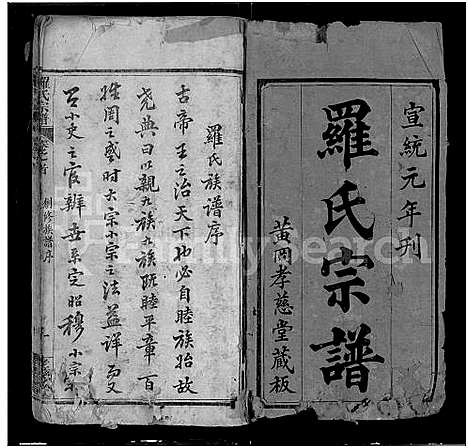 宣統元年刋
羅氏宗譜
黄岡孝慈堂藏板
羅氏族譜序
古帝王之治天下也必自睦族始故
堯典曰以親九族九族既睦平章百
姓周之盛時大宗小宗之法益詳而又
召小史之官辨世系定昭穆小宗
羅氏宗譜
創修族譜序
FamilySearch